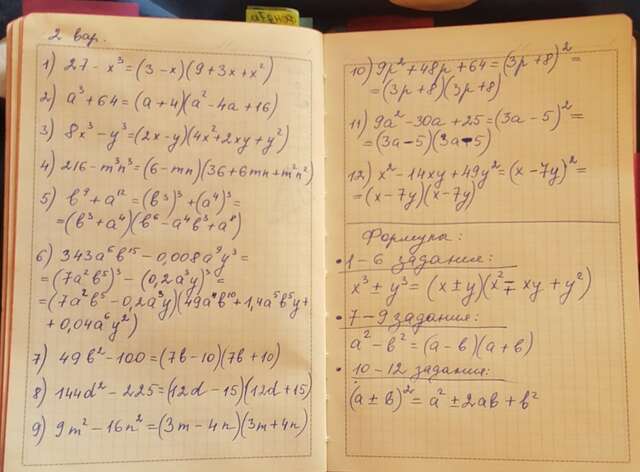 2 вар.
1) 27 - x³ = (3 - x)(9 + 3x + x²)
2) a³ + 64 = (a + 4)(a² - 4a + 16)
3) 8x³ - y³ = (2x - y)(4x² + 2xy + y²)
4) 216 - m³n³ = (6 - mn)(36 + 6mn + m²n²)
5) b⁹ + a¹² = (b³)³ + (a⁴)³ =
= (b³ + a⁴)(b⁶ - a⁴b³ + a⁸)
6) 343a⁶b¹⁵ - 0,008a⁹y³ =
= (7a²b⁵)³ - (0,2a³y)³ =
= (7a²b⁵ - 0,2a³y)(49a⁴b¹⁰ + 1,4a⁵b⁵y +
+ 0,04a⁶y²)
7) 49b² - 100 = (7b - 10)(7b + 10)
8) 144d² - 225 = (12d - 15)(12d + 15)
9) 9m² - 16n² = (3m - 4n)(3m + 4n)
10) 9p² + 48p + 64 = (3p + 8)² =
= (3p + 8)(3p + 8)
11) 9a² - 30a + 25 = (3a - 5)² =
= (3a - 5)(3a - 5)
12) x² - 14xy + 49y² = (x - 7y)² =
= (x - 7y)(x - 7y)
Формулы:
• 1 - 6 задания:
x³ ± y³ = (x ± y)(x² ∓ xy + y²)
• 7 - 9 задания:
a² - b² = (a - b)(a + b)
• 10 - 12 задания:
(a ± b)² = a² ± 2ab + b²